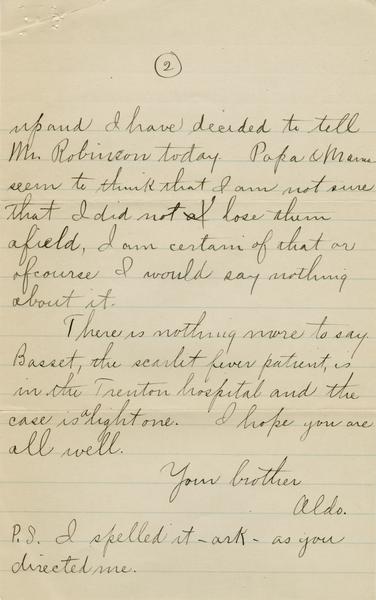 2
up and I have decided to tell
Mr. Robinson today. Papa & Mama
seem to think that I am not sure
that I did not lose them
afield, I am certain of that or
ofcourse I would say nothing
about it.
There is nothing more to say.
Basset, the scarlet fever patient, is
in the Trenton hospital and the
case is a light one. I hope you are
all well.
Your brother
Aldo.
P.S. I spelled it -ark- as you
directed me.